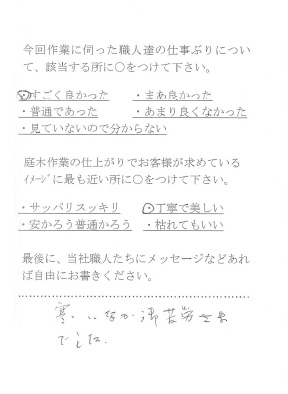 今回作業に伺った職人達の仕事ぶりについ
て、該当する所に○をつけて下さい。
・すごく良かった ・まあ良かった
・普通であった ・あまり良くなかった
・見ていないので分からない
庭木作業の仕上がりでお客様が求めている
ｲﾒｰｼﾞに最も近い所に○をつけて下さい。
・サッパリスッキリ ・丁寧で美しい
・安かろう普通かろう ・枯れてもいい
最後に、当社職人たちにメッセージなどあれ
ば自由にお書きください。
寒いなか御苦労さま
でした